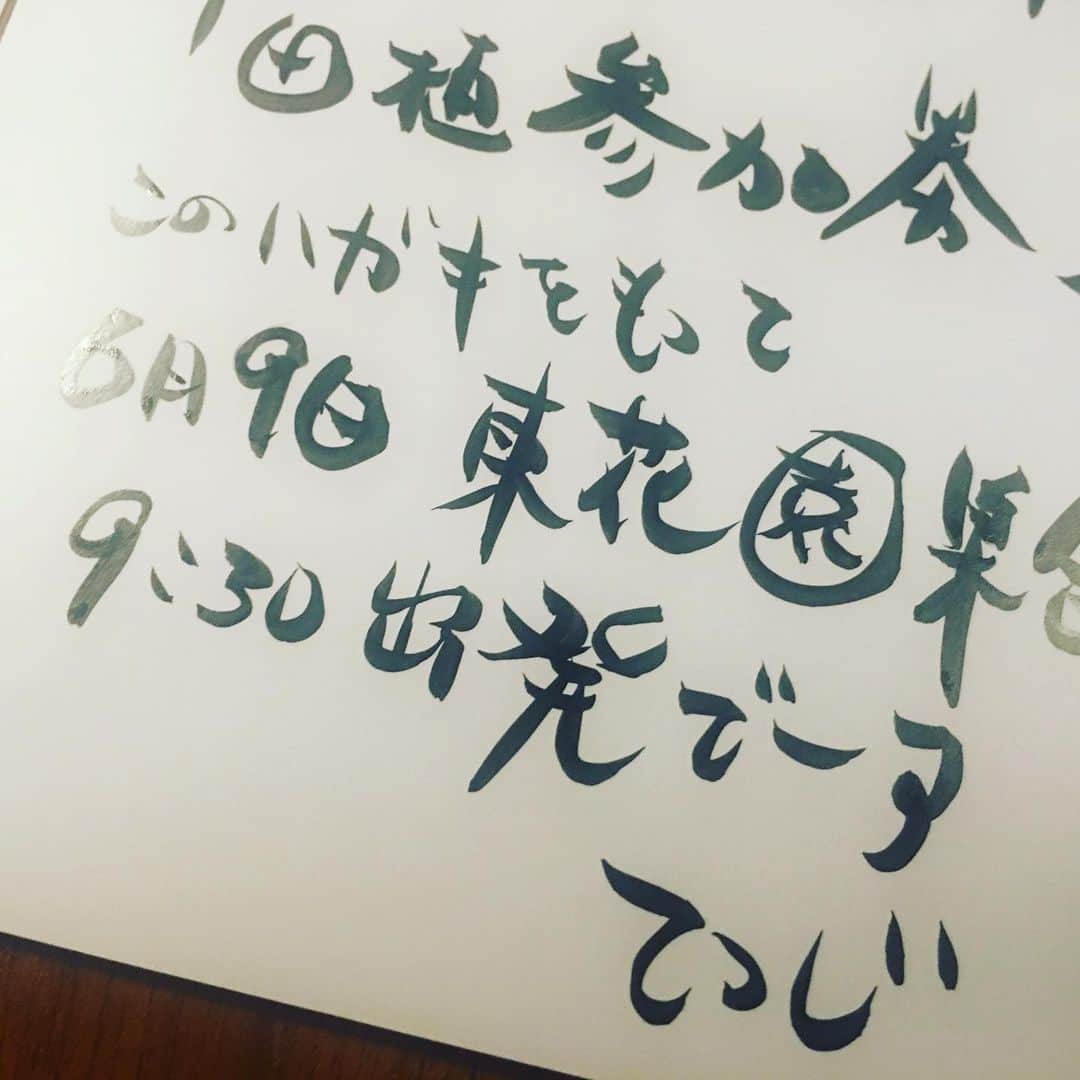 田植参加券
このハガキをもって
6月9日 東花園集合
9:30出発でーす
てつじ